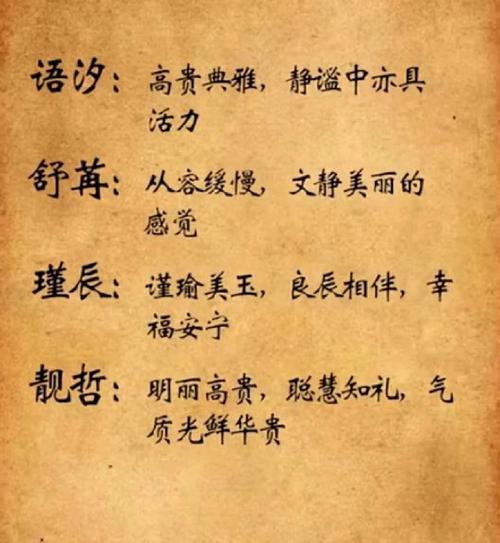 语汐：高贵典雅，静谧中亦具
活力
舒苒：从容缓慢，文静美丽的
感觉
瑾辰：谨瑜美玉，良辰相伴，幸
福安宁
靓哲：明丽高贵，聪慧知礼，气
质光鲜华贵